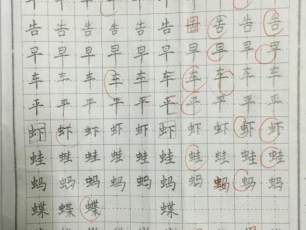 告 告 告 告 告 告 告 告 告
早 早 早 早 早 早 早 早 早
车 车 车 车 车 车 车 车 车
平 平 平 平 平 平 平 平
虾 虾 虾 虾 虾 虾 虾 虾 虾
蛙 蛙 蛙 蛙 蛙 蛙 蛙 蛙 蛙
蚂 蚂 蚂 蚂 蚂 蚂 蚂 蚂 蚂
蝶 蝶 蝶 蝶